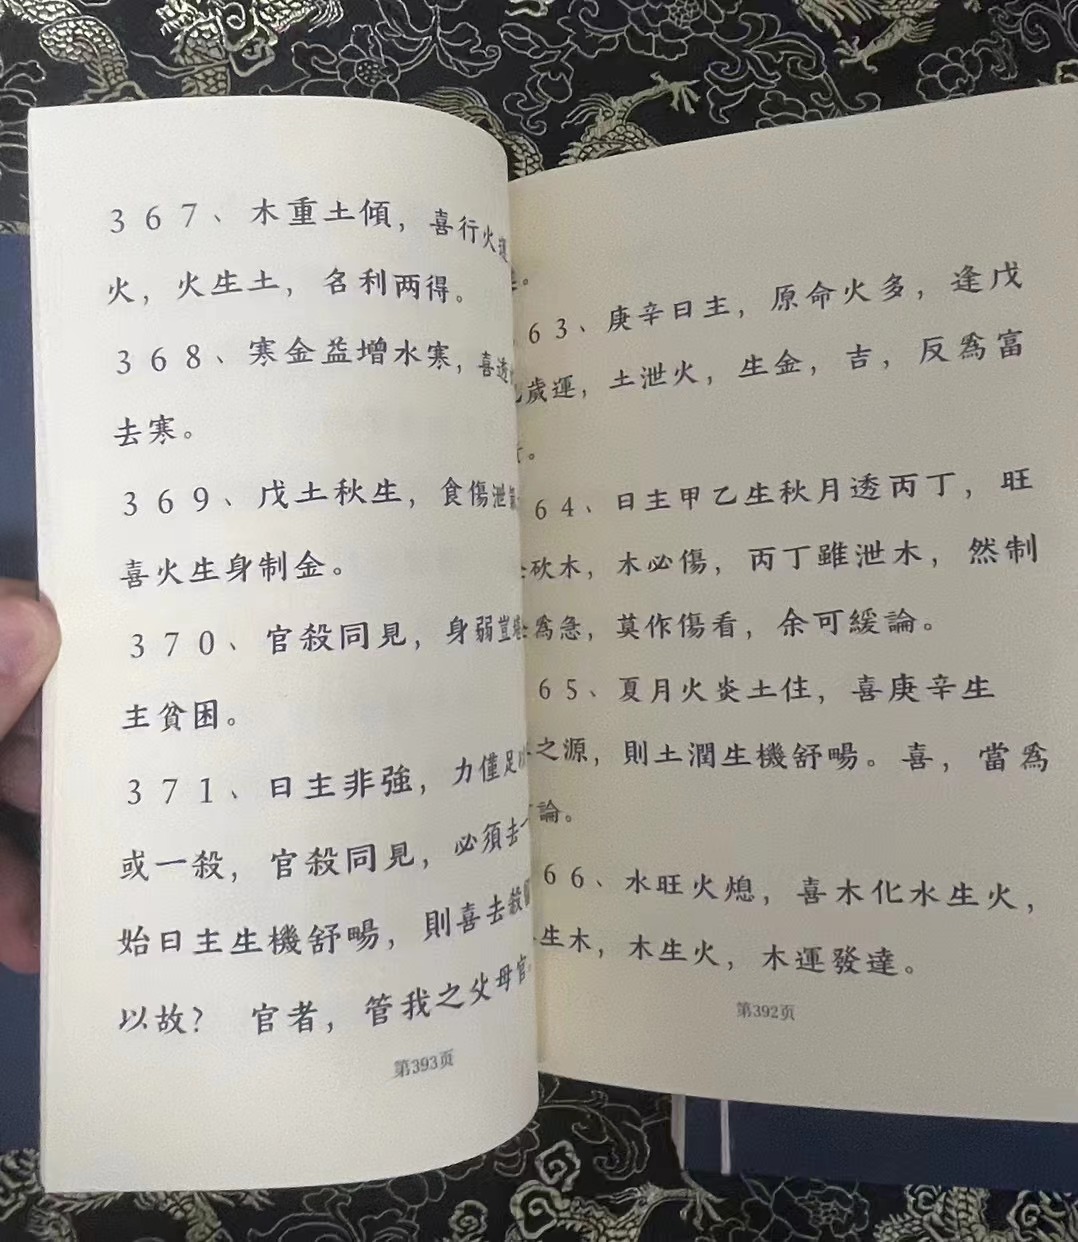 367、木重土傾，喜行火運
火，火生土，名利两得。
368、寒金益增水寒，喜透
去寒。
369、戊土秋生，食傷泄
喜火生身制金。
370、官殺同見，身弱豈堪
主貧困。
371、日主非強，力僅足以
或一殺，官殺同見，必須去一
始日主生機舒暢，則喜去殺留
以故？ 官者，管我之父母官
第393页
63、庚辛日主，原命火多，逢戊
己歲運，土泄火，生金，吉，反爲富
。
64、日主甲乙生秋月透丙丁，旺
砍木，木必傷，丙丁雖泄木，然制
爲急，莫作傷看，余可緩論。
65、夏月火炎土住，喜庚辛生
之源，則土潤生機舒暘。喜，當爲
論。
66、水旺火熄，喜木化水生火，
生木，木生火，木運發達。
第392页